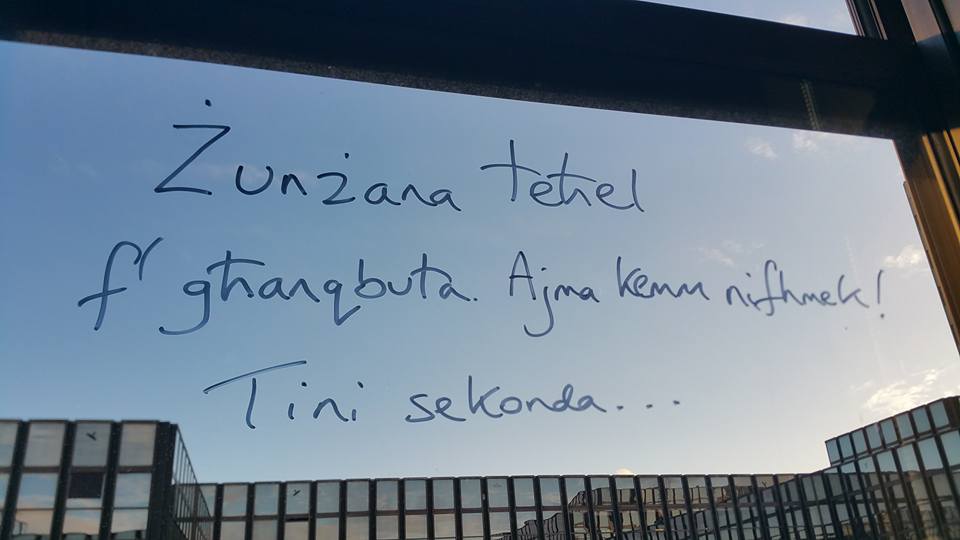 Żunżana teħel
f' għanqbuta. Ajma kemm nifhmek!
Tini sekonda...